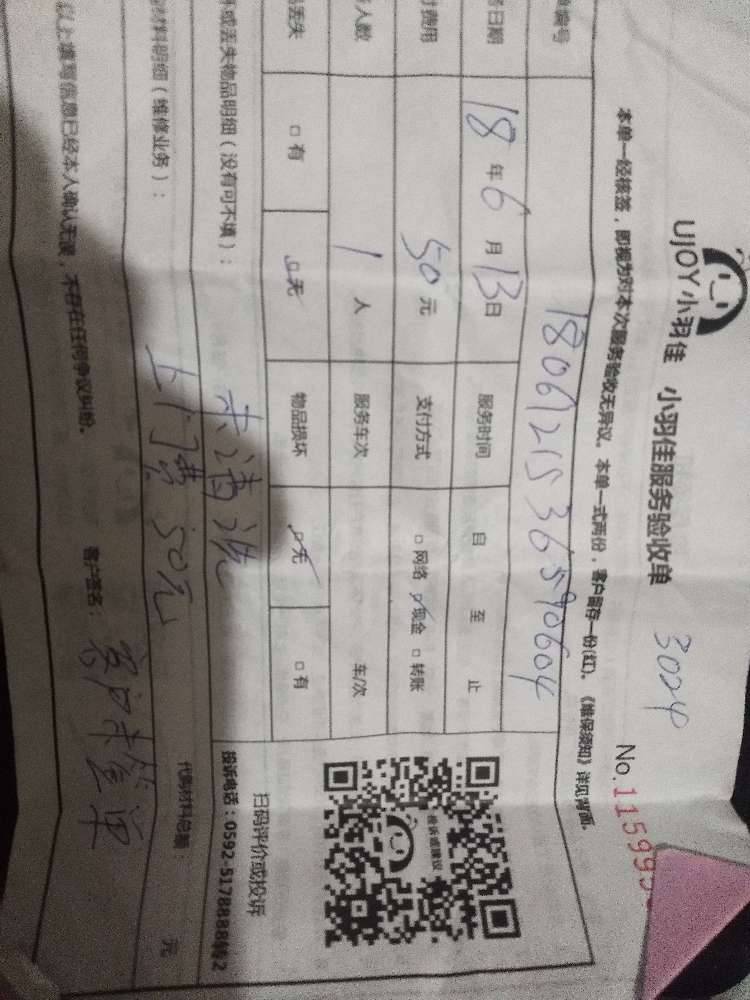 UJOY小羽佳 小羽佳服务验收单 3024 No.115999
本单一经核签，即视为对本次服务验收无异议。本单一式两份，客户留存一份(红)。《维保须知》详见背面。
编号 1806121536590604
日期 18年6月13日 服务时间 自 至 止
费用 50元 支付方式 □网络 ☑现金 □转账
人数 1人 服务车次 车/次
丢失 □有 ☑无 物品损坏 ☑无 □有
或丢失物品明细（没有可不填）： 未清洗
材料明细（维修业务）： 上门费 50元 代购材料总额： 元
以上填写信息已经本人确认无误，不存在任何争议纠纷。 客户签名： 客户未签单
投诉或建议
扫码评价或投诉
投诉电话：0592-5178888转2